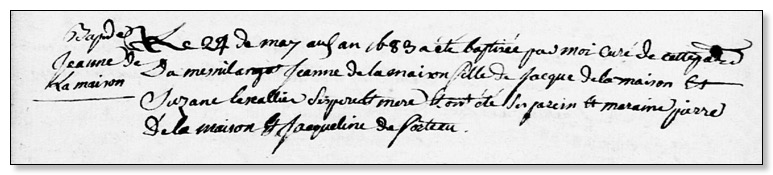 Bap de
Jeanne de
La maison
Le 24 de may audt an 1683 a été baptizée par moi curé de cette
Jeanne de la maison fille de Jacque de la maison Et
Suzane ses pere et mere Et ont été ses parein Et maraine pierre
De la maison Et Jacqueline de